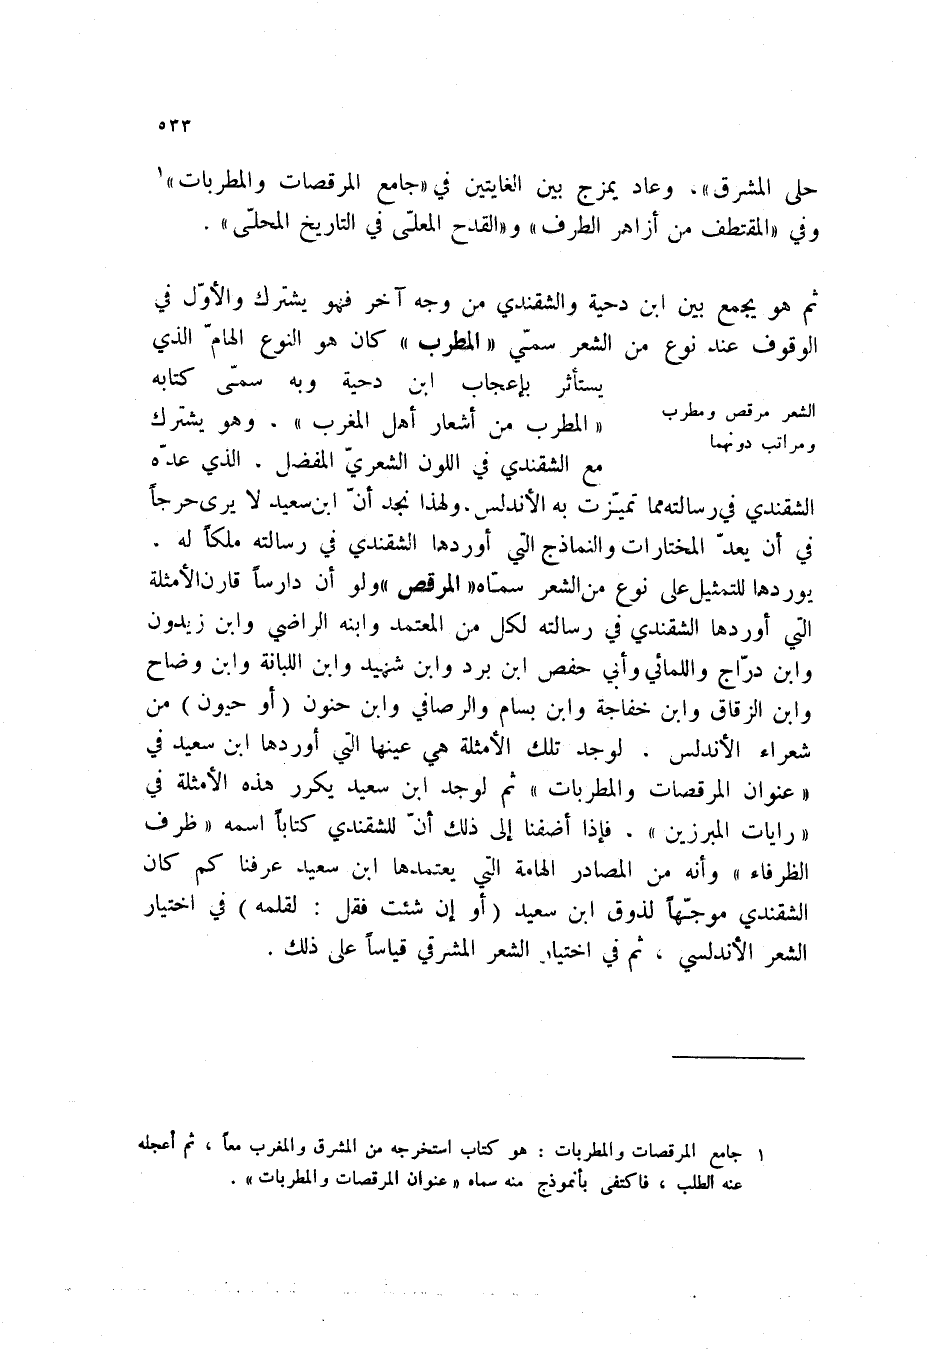 ٥٣٣
حلى المشرق». وعاد يمزج بين الغايتين في «جامع المرقصات والمطربات»١
وفي «المقتطف من أزاهر الطرف» و«القدح المعلّى في التاريخ المحلّى» .
ثم هو يجمع بين ابن دحية والشقندي من وجه آخر فهو يشترك والأوّل في
الوقوف عند نوع من الشعر سمّي «المطرب» كان هو النوع الهامّ الذي
يستأثر بإعجاب ابن دحية وبه سمّى كتابه
الشعر مرقص ومطرب
«المطرب من أشعار أهل المغرب» . وهو يشترك
ومراتب دونهما
مع الشقندي في اللون الشعريّ المفضل . الذي عدّه
الشقندي في رسالته مما تميّزت به الأندلس. ولهذا نجد أنّ ابن سعيد لا يرى حرجاً
في أن يعدّ المختارات والنماذج التي أوردها الشقندي في رسالته ملكاً له .
يوردها للتمثيل على نوع من الشعر سمّاه «المرقص» ولو أن دارساً قارن الأمثلة
التي أوردها الشقندي في رسالته لكل من المعتمد وابنه الراضي وابن زيدون
وابن درّاج واللمائي وأبي حفص ابن برد وابن شهيد وابن اللبانة وابن وضاح
وابن الزقاق وابن خفاجة وابن بسام والرصافي وابن حنون (أو حيون) من
شعراء الأندلس . لوجد تلك الأمثلة هي عينها التي أوردها ابن سعيد في
«عنوان المرقصات والمطربات» ثم لوجد ابن سعيد يكرر هذه الأمثلة في
«رايات المبرزين» . فإذا أضفنا إلى ذلك أنّ للشقندي كتاباً اسمه «ظرف
الظرفاء» وأنه من المصادر الهامة التي يعتمدها ابن سعيد عرفنا كم كان
الشقندي موجّهاً لذوق ابن سعيد (أو إن شئت فقل : لقلمه) في اختيار
الشعر الأندلسي ، ثم في اختيار الشعر المشرقي قياساً على ذلك .
١ جامع المرقصات والمطربات : هو كتاب استخرجه من المشرق والمغرب معاً ، ثم أعجله
عنه الطلب ، فاكتفى بأنموذج منه سماه «عنوان المرقصات والمطربات» .